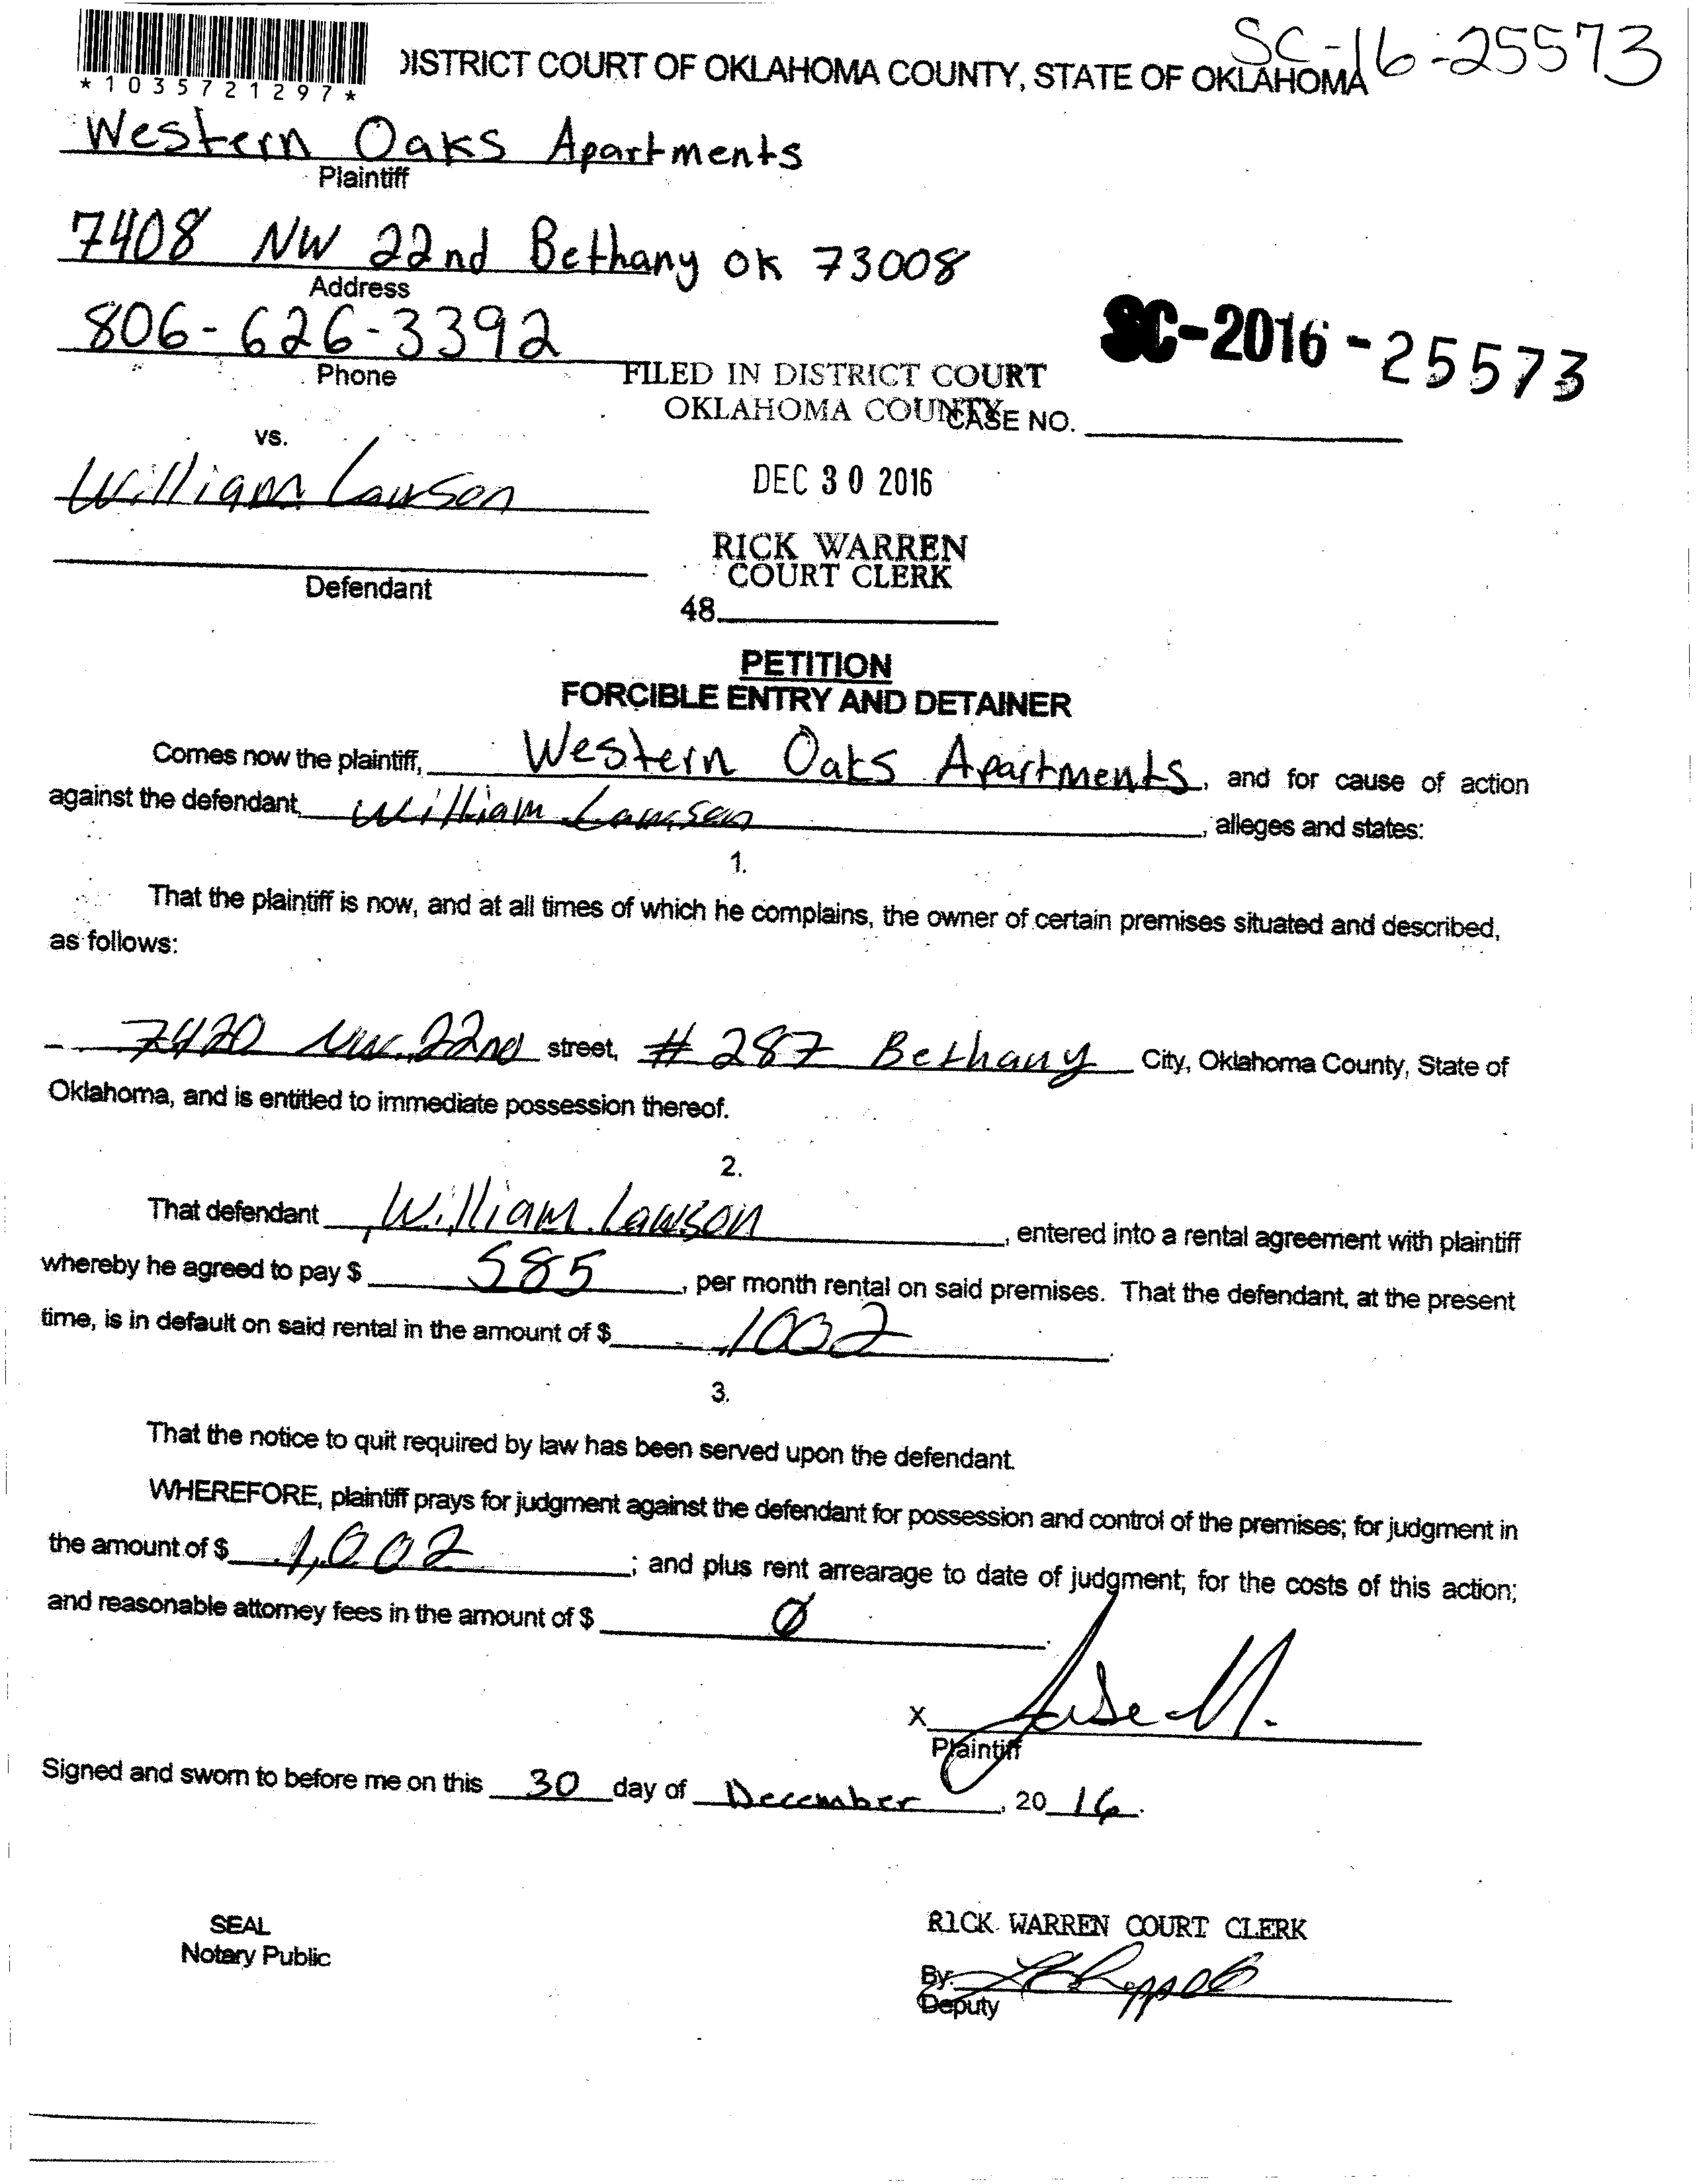 SC-16-25573
*1035721297*
DISTRICT COURT OF OKLAHOMA COUNTY, STATE OF OKLAHOMA
Western Oaks Apartments
Plaintiff
7408 NW 22nd Bethany OK 73008
Address
806-626-3392
Phone
SC-2016-25573
FILED IN DISTRICT COURT
OKLAHOMA COUNTY
CASE NO.
vs.
William Lawson
DEC 30 2016
RICK WARREN
COURT CLERK
Defendant
48
PETITION
FORCIBLE ENTRY AND DETAINER
Comes now the plaintiff, Western Oaks Apartments, and for cause of action
against the defendant, William Lawson, alleges and states:
1.
That the plaintiff is now, and at all times of which he complains, the owner of certain premises situated and described,
as follows:
7420 NW. 22nd street, # 287 Bethany City, Oklahoma County, State of
Oklahoma, and is entitled to immediate possession thereof.
2.
That defendant William Lawson, entered into a rental agreement with plaintiff
whereby he agreed to pay $ 585, per month rental on said premises. That the defendant, at the present
time, is in default on said rental in the amount of $ 1002.
3.
That the notice to quit required by law has been served upon the defendant.
WHEREFORE, plaintiff prays for judgment against the defendant for possession and control of the premises; for judgment in
the amount of $ 1,002; and plus rent arrearage to date of judgment; for the costs of this action;
and reasonable attorney fees in the amount of $ Ø.
X
Plaintiff
Signed and sworn to before me on this 30 day of December, 20 16.
SEAL
Notary Public
RICK WARREN COURT CLERK
By:
Deputy